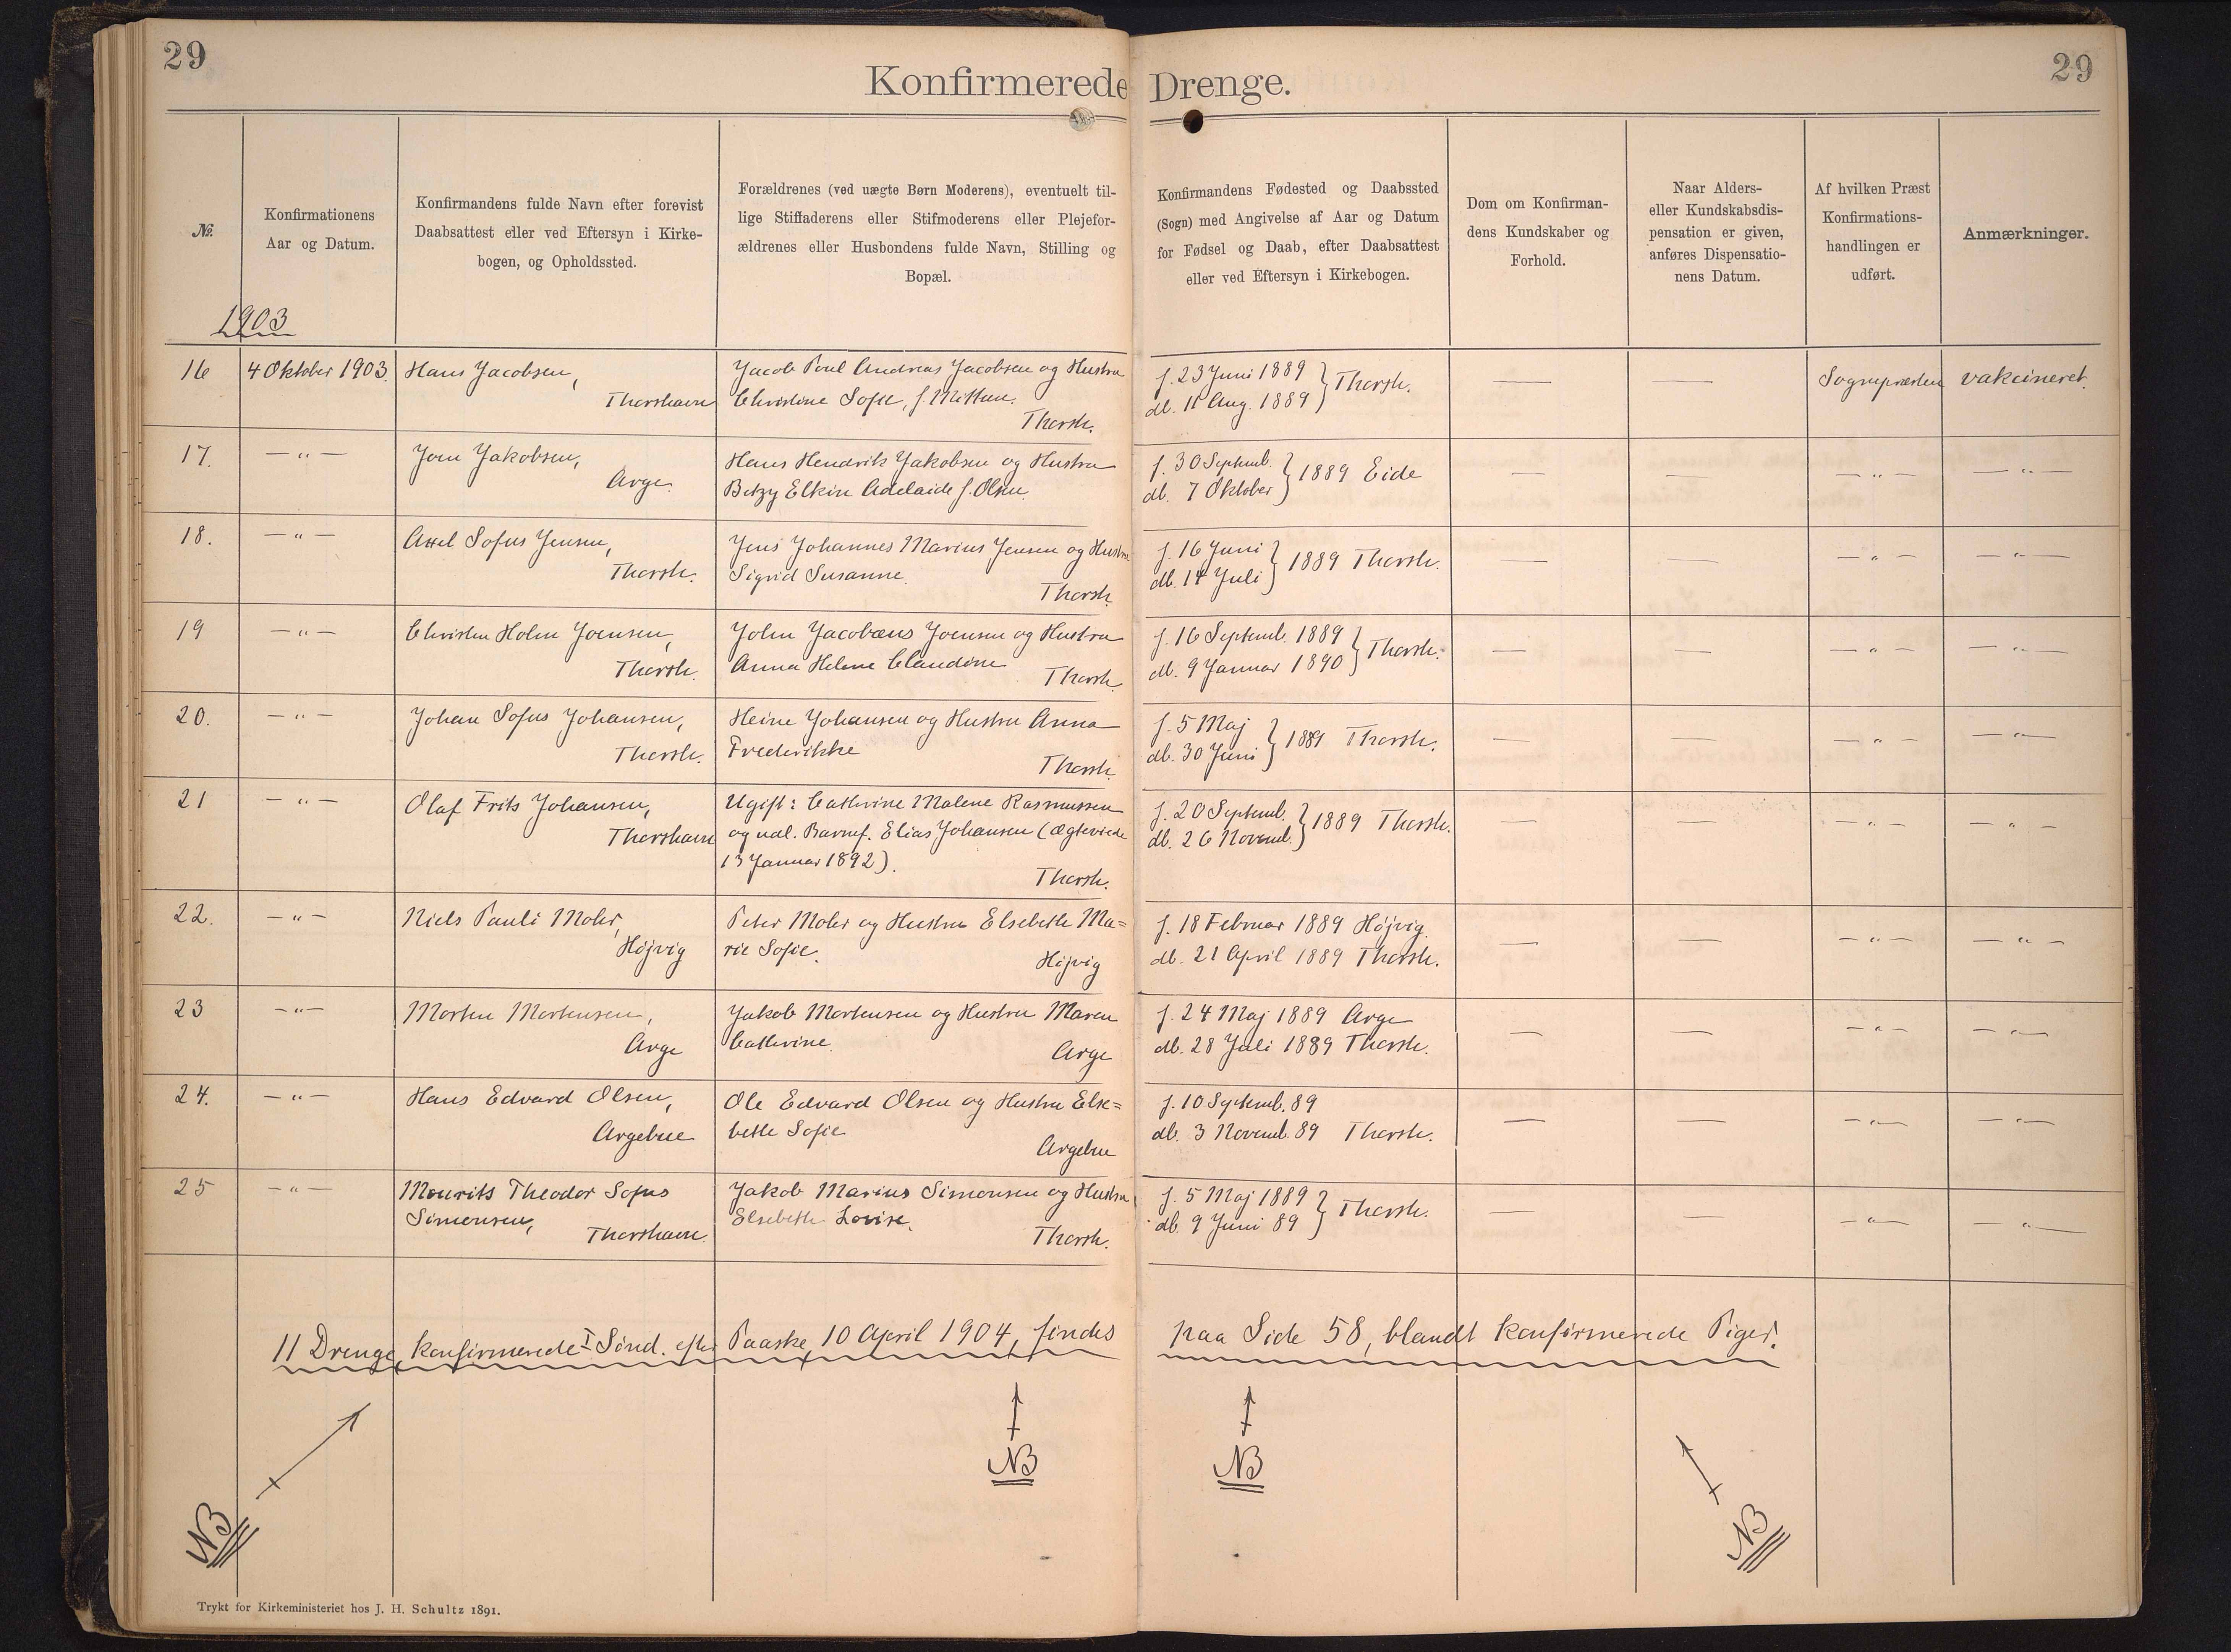 29
29
Konfirmerede Drenge.
№.
Konfirmationens
Aar og Datum.
Konfirmandens fulde Navn efter forevist
Daabsattest eller ved Eftersyn i Kirke-
bogen, og Opholdssted.
Forældrenes (ved uægte Børn Moderens), eventuelt til-
lige Stiffaderens eller Stifmoderens eller Plejefor-
ældrenes eller Husbondens fulde Navn, Stilling og
Bopæl.
Konfirmandens Fødested og Daabssted
(Sogn) med Angivelse af Aar og Datum
for Fødsel og Daab, efter Daabsattest
eller ved Eftersyn i Kirkebogen.
Dom om Konfirman-
dens Kundskaber og
Forhold.
Naar Alders-
eller Kundskabsdis-
pensation er given,
anføres Dispensatio-
nens Datum.
Af hvilken Præst
Konfirmations-
handlingen er
udført.
Anmærkninger.
1903
16
4 Oktober 1903.
Hans Jacobsen,
Thorshavn
Jacob Poul Andreas Jacobsen og Hustru
Christine Sofie, f.
Thorsh.
f. 23 Juni 1889
db. 11 Aug. 1889 } Thorsh.
—
—
Sognepræsten
vakcineret.
17.
— „ —
Joen Jakobsen,
Arge.
Hans Hendrik Jakobsen og Hustru
Betzy Elkin Adelaide f. Olsen.
f. 30 Septemb.
db. 7 Oktober } 1889 Eide
—
—
— „ —
— „ —
18.
— „ —
Axel Sofus Jensen,
Thorsh.
Jens Johannes Marius Jensen og Hustru
Sigrid Susanne.
Thorsh.
f. 16 Juni
db. 14 Juli } 1889 Thorsh.
—
—
— „ —
— „ —
19
— „ —
Christen Holm Joensen,
Thorsh.
John Jacobæus Joensen og Hustru
Anna Helene Claudine
Thorsh.
f. 16 Septemb. 1889
db. 9 Januar 1890 } Thorsh.
—
—
— „ —
— „ —
20.
— „ —
Johan Sofus Johansen,
Thorsh.
Heine Johansen og Hustru Anna
Frederikke
Thorsh.
f. 5 Maj
db. 30 Juni } 1889 Thorsh.
—
—
— „ —
— „ —
21
— „ —
Olaf Frits Johansen,
Thorshavn
Ugift: Cathrine Malene Rasmussen
og udl. Barnef. Elias Johansen (ægteviede
13 Januar 1892).
Thorsh.
f. 20 Septemb.
db. 26 Novemb. } 1889 Thorsh.
—
—
— „ —
— „ —
22.
— „ —
Niels Pauli Mohr,
Højvig
Peter Mohr og Hustru Elsebeth Ma=
rie Sofie.
Højvig
f. 18 Februar 1889 Højvig.
db. 21 April 1889 Thorsh.
—
—
— „ —
— „ —
23
— „ —
Morten Mortensen,
Arge
Jakob Mortensen og Hustru Maren
Cathrine.
Arge
f. 24 Maj 1889 Arge
db. 28 Juli 1889 Thorsh.
—
—
— „ —
— „ —
24.
— „ —
Hans Edvard Olsen,
Argebue
Ole Edvard Olsen og Hustru Else=
beth Sofie
Argebue
f. 10 Septemb. 89
db. 3 Novemb. 89 Thorsh.
—
—
— „ —
— „ —
25
— „ —
Mourits Theodor Sofus
Simonsen,
Thorshavn.
Jakob Marius Simonsen og Hustru
Elsebeth Lovise.
Thorsh.
f. 5 Maj 1889
db. 9 Juni 89 } Thorsh.
—
—
— „ —
— „ —
11 Drenge, konfirmerede I Sønd. efter Paaske, 10 April 1904, findes paa Side 58, blandt konfirmerede Piger.
NB
NB
NB
NB
Trykt for Kirkeministeriet hos J. H. Schultz 1891.